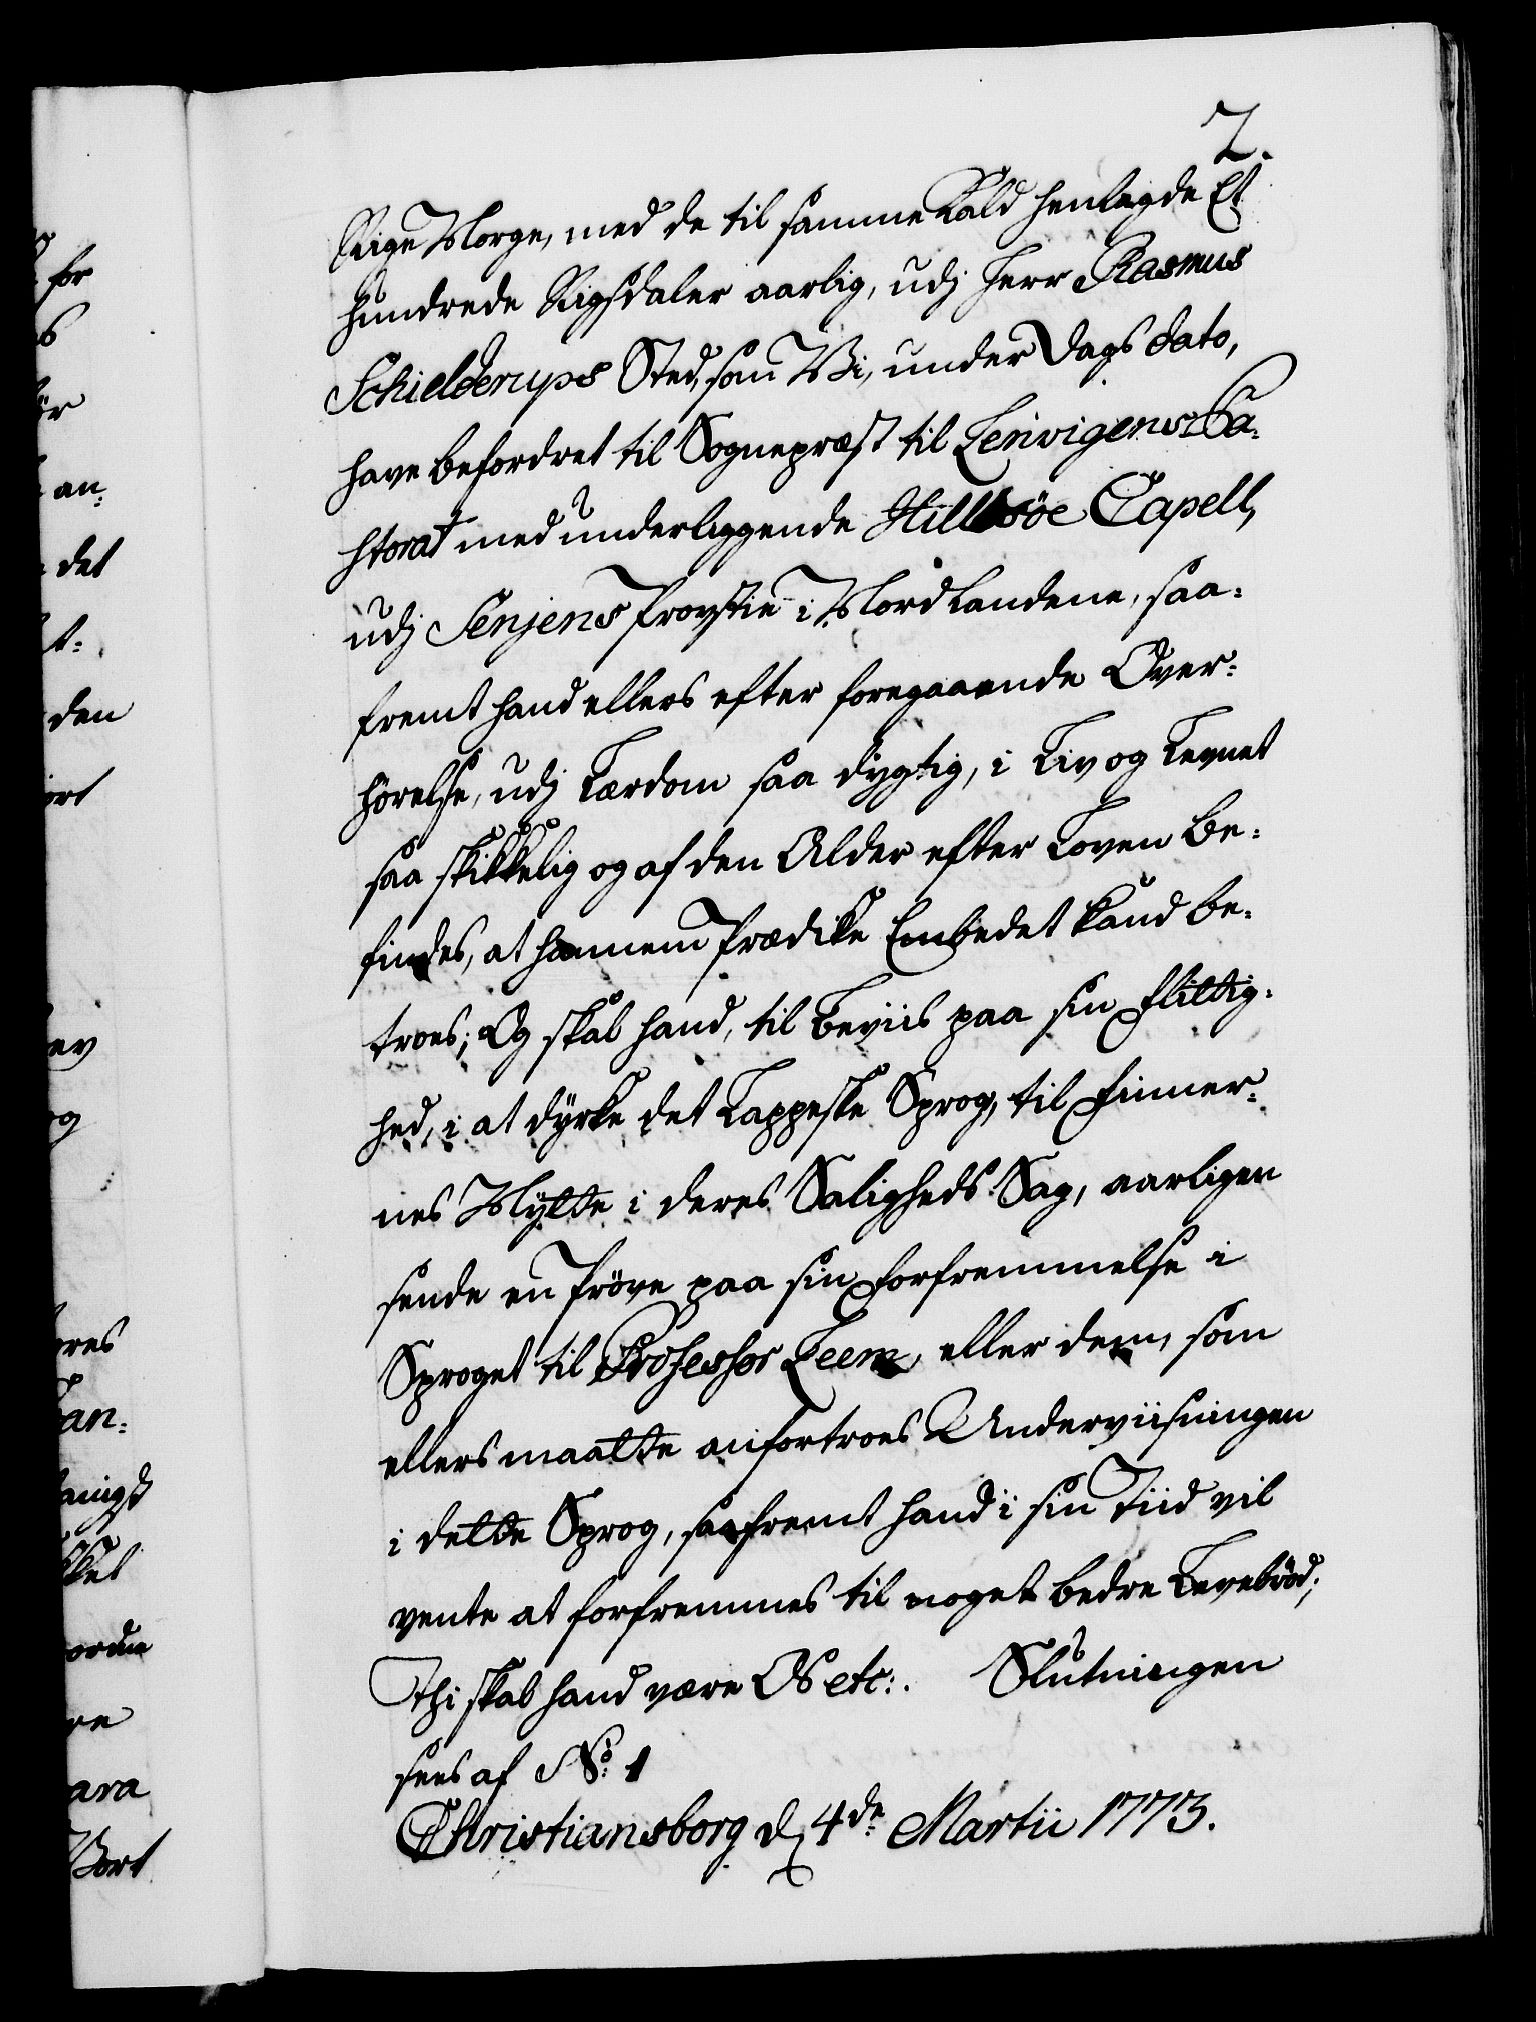 2.
Rige Norge, med de til samme Kald henlagde Et
hundrede Rigsdaler aarlig, udj Herr Rasmus
Schielderups Sted, som Vi, under Dags dato,
have befordret til Sognepræst til Lenvigens Pa-
storat med underliggende Hillesöe Capell,
udj Senjens Provstie i Nordlandene, saa-
fremt hand ellers efter foregaaende Over-
hörelse, udj Lærdom saa dygtig, i Liv og Levnet
saa skikkelig og af den Alder efter Loven be-
findes, at hannem Prædike Embedet kand be-
troes; Og skal hand, til Beviis paa sin Flittig-
hed, i at dyrke det Lappeske Sprog, til Finner-
nes Nytte i deres Saligheds Sag, aarligen
sende en Pröve paa sin Forfremmelse i
Sproget til Professor Leem, eller dem, som
ellers maatte anfortroes Underviisningen
i dette Sprog, saafremt hand i sin Tiid vil
vente at forfremmes til noget bedre Levebröd;
Thi skal hand være Os etc:. Slutningen
sees af No: 1
Christiansborg d. 4de Martii 1773.
for
an-
det
den
ört
ev
og
an-
re
ara
Vort